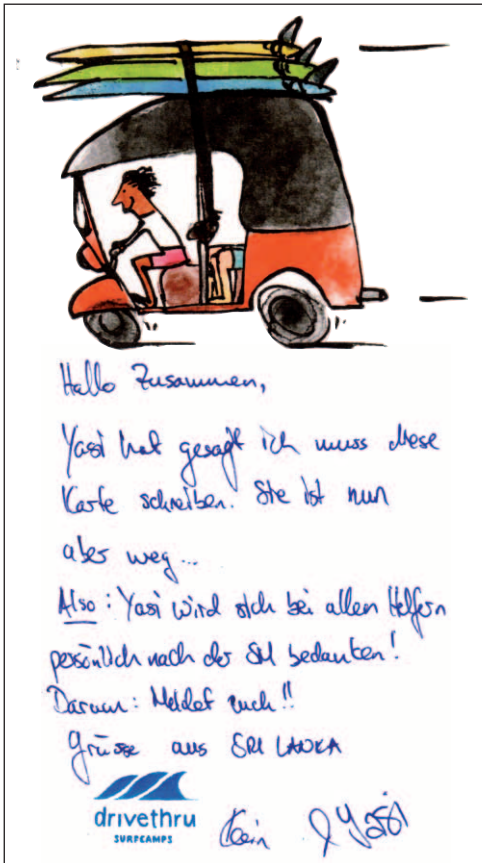 Hallo Zusammen,
Yasi hat gesagt ich muss diese
Karte schreiben. Sie ist nun
aber weg...
Also: Yasi wird sich bei allen Helfern
persönlich nach der SM bedanken!
Darum: Meldet euch!!
Grüsse aus SRI LANKA
drivethru
SURFCAMPS
& Yasi